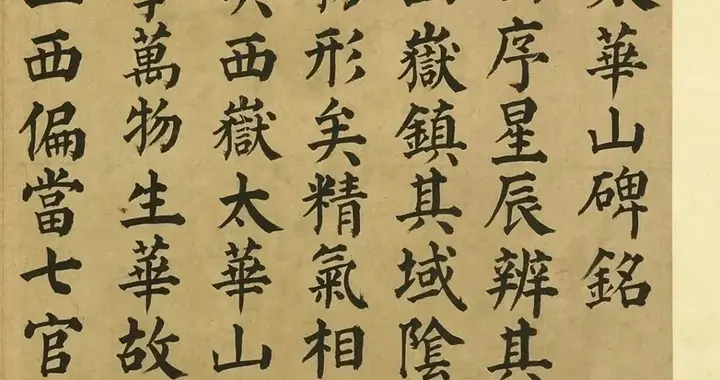 太華山碑銘
序星辰辨其
嶽鎮其域陰
形矣精氣相
西嶽太華山
萬物生華故
西偏當七官